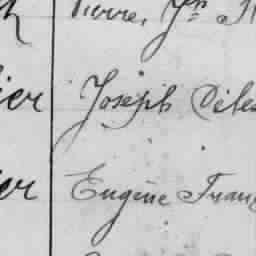 Pierre, Jn
ier Joseph Céles
er Eugène Franç